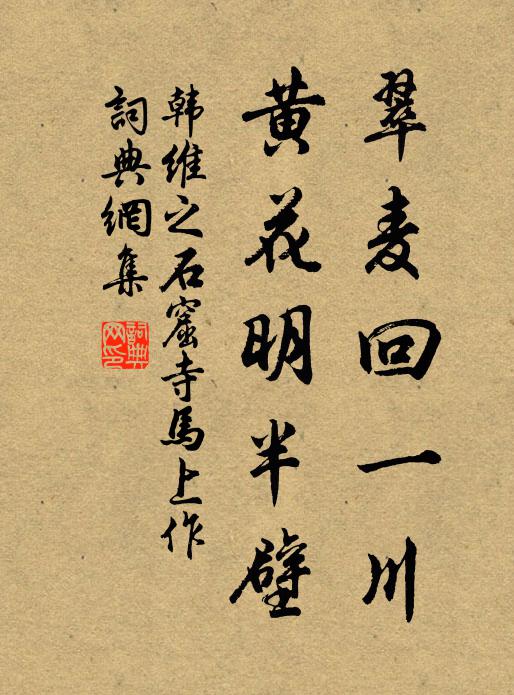 翠麦回一川
黄花明半壁
韩维之石窟寺馬上作
詞典網集
詞典网印